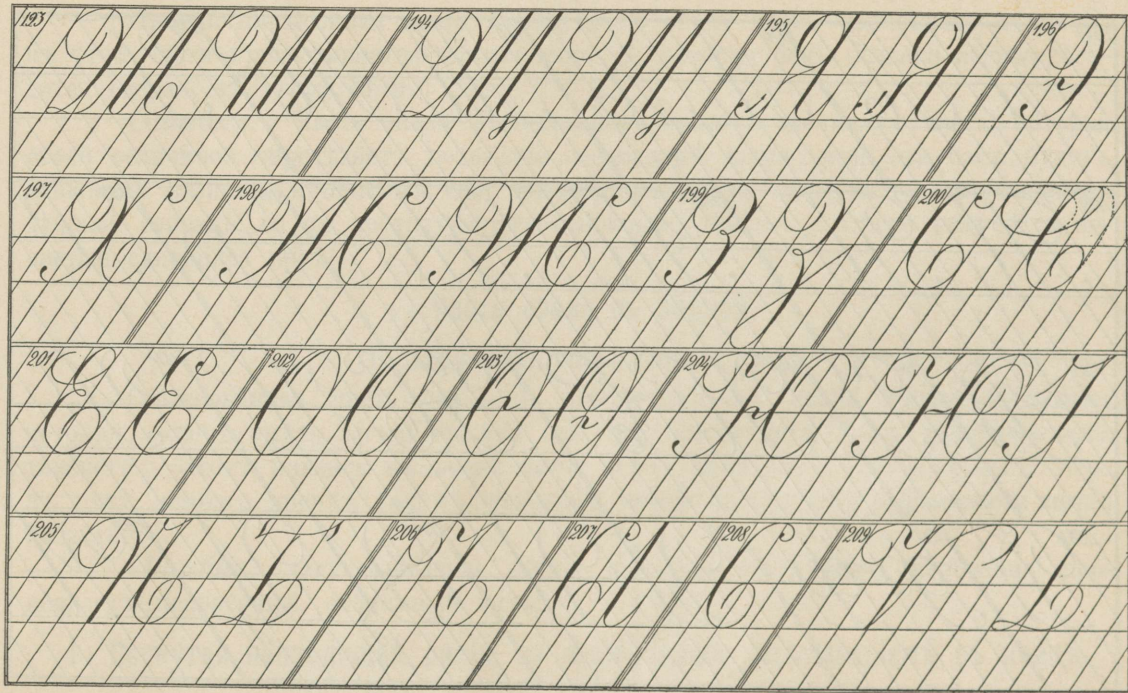 193 Ш Ш 194 Щ Щ 195 Я Я 196 Э
197 Х 198 Ж Ж 199 З З 200 С С
201 Е Е 202 О О 203 Ѳ Ѳ 204 Ю Ю І
205 N L 206 U 207 U 208 C 209 V L